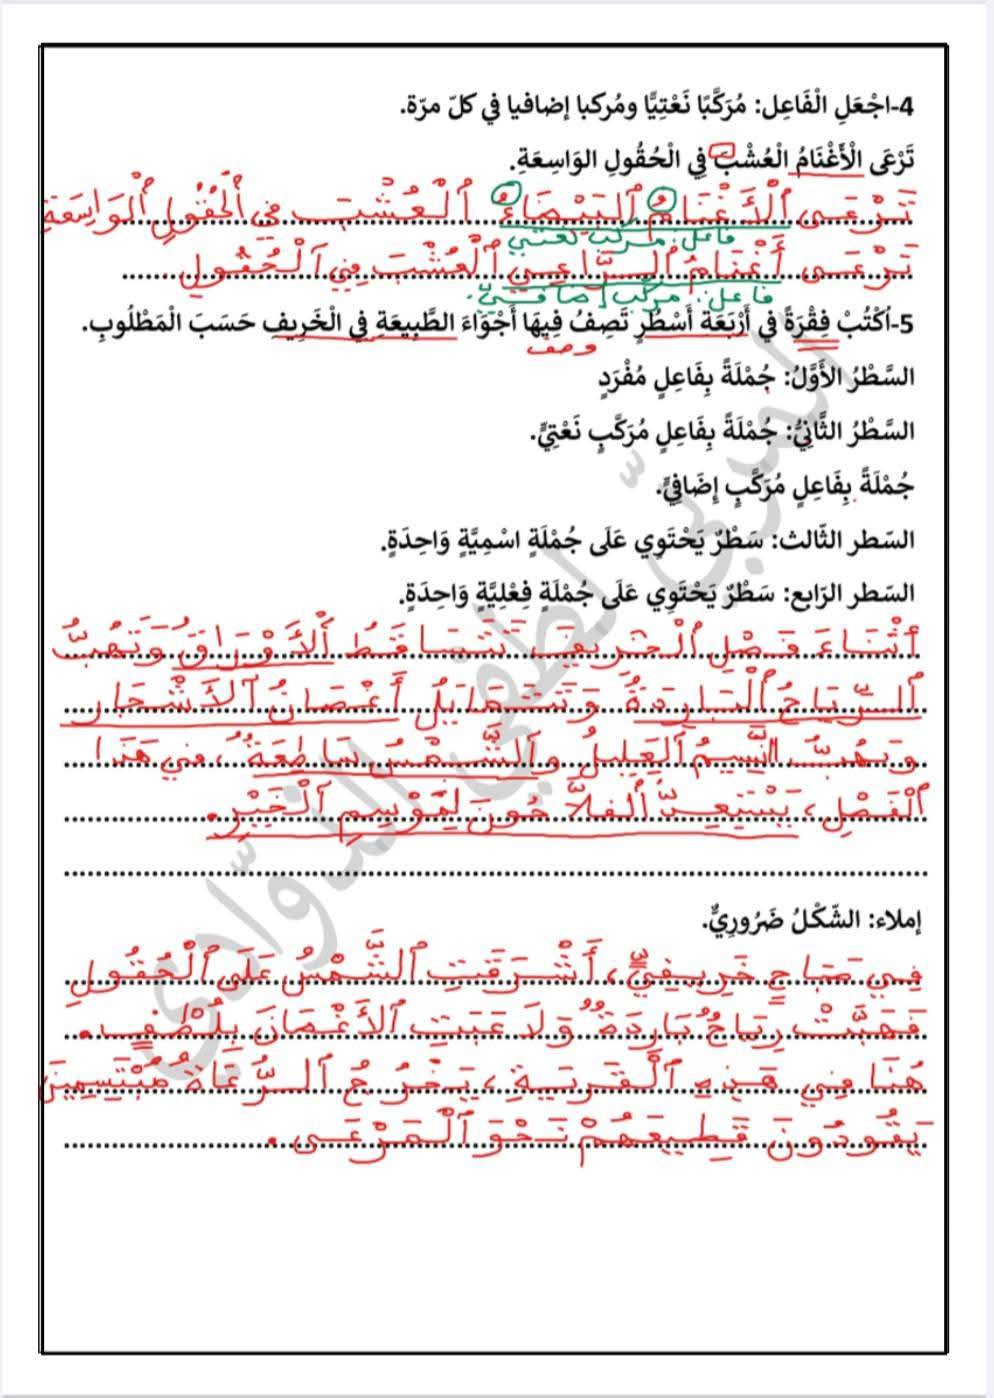 4-اجْعَلِ الْفَاعِل: مُرَكَّبًا نَعْتِيًّا ومُركبا إضافيا في كلّ مرّة.
تَرْعَى الْأَغْنَامُ الْعُشْبَ فِي الْحُقُولِ الوَاسِعَةِ.
تَرْعَى ٱلْأَغْنَامُ ٱلبَيْضَاءُ ٱلْعُشْبَ فِي ٱلْحُقُولِ ٱلوَاسِعَةِ
فاعل: مركب نعتي
تَرْعَى أَغْنَامُ ٱلرَّاعِي ٱلْعُشْبَ فِي ٱلْحُقُولِ
فاعل: مركب إضافيّ.
5-اُكْتُبْ فِقْرَةً فِي أَرْبَعَة أَسْطُرٍ تَصِفُ فِيهَا أَجْوَاءَ الطَّبِيعَةِ فِي الْخَرِيفِ حَسَبَ الْمَطْلُوبِ.
وصف
السَّطْرُ الأَوَّلُ: جُمْلَةً بِفَاعِلٍ مُفْرَدٍ
السَّطْرُ الثَّانِيُّ: جُمْلَةً بِفَاعِلٍ مُرَكَّبٍ نَعْتِيٍّ.
جُمْلَةً بِفَاعِلٍ مُرَكَّبٍ إِضَافِيٍّ.
السّطر الثّالث: سَطْرٌ يَحْتَوِي عَلَى جُمْلَةٍ اسْمِيَّةٍ وَاحِدَةٍ.
السّطر الرّابع: سَطْرٌ يَحْتَوِي عَلَى جُمْلَةٍ فِعْلِيَّةٍ وَاحِدَةٍ.
أَثْنَاءَ فَصْلِ ٱلْخَرِيفِ تَتَسَاقَطُ ٱلْأَوْرَاقُ وَتَهُبُّ
ٱلرِّيَاحُ ٱلْبَارِدَةُ وَتَتَمَايَلُ أَغْصَانُ ٱلْأَشْجَارِ
وَيَهُبُّ النَّسِيمُ ٱلعَلِيلُ وَٱلشَّمْسُ سَاطِعَةٌ، فِي هَذَا
ٱلْفَصْلِ، يَسْتَعِدُّ ٱلفَلَّاحُونَ لِمَوْسِمِ ٱلْخَيْرِ.
إملاء: الشّكْلُ ضَرُورِيٌّ.
فِي صَبَاحٍ خَرِيفِيٍّ، أَشْرَقَتِ ٱلشَّمْسُ عَلَى ٱلْحُقُولِ
فَهَبَّتْ رِيَاحٌ بَارِدَةٌ وَلَاعَبَتِ ٱلْأَغْصَانَ بِلُطْفٍ.
هُنَا فِي هَذِهِ ٱلْقَرْيَةِ، يَخْرُجُ ٱلرُّعَاةُ مُبْتَسِمِينَ
يَقُودُونَ قَطِيعَهُمْ نَحْوَ ٱلْمَرْعَى.
العربيّ لطفي الذوّادي